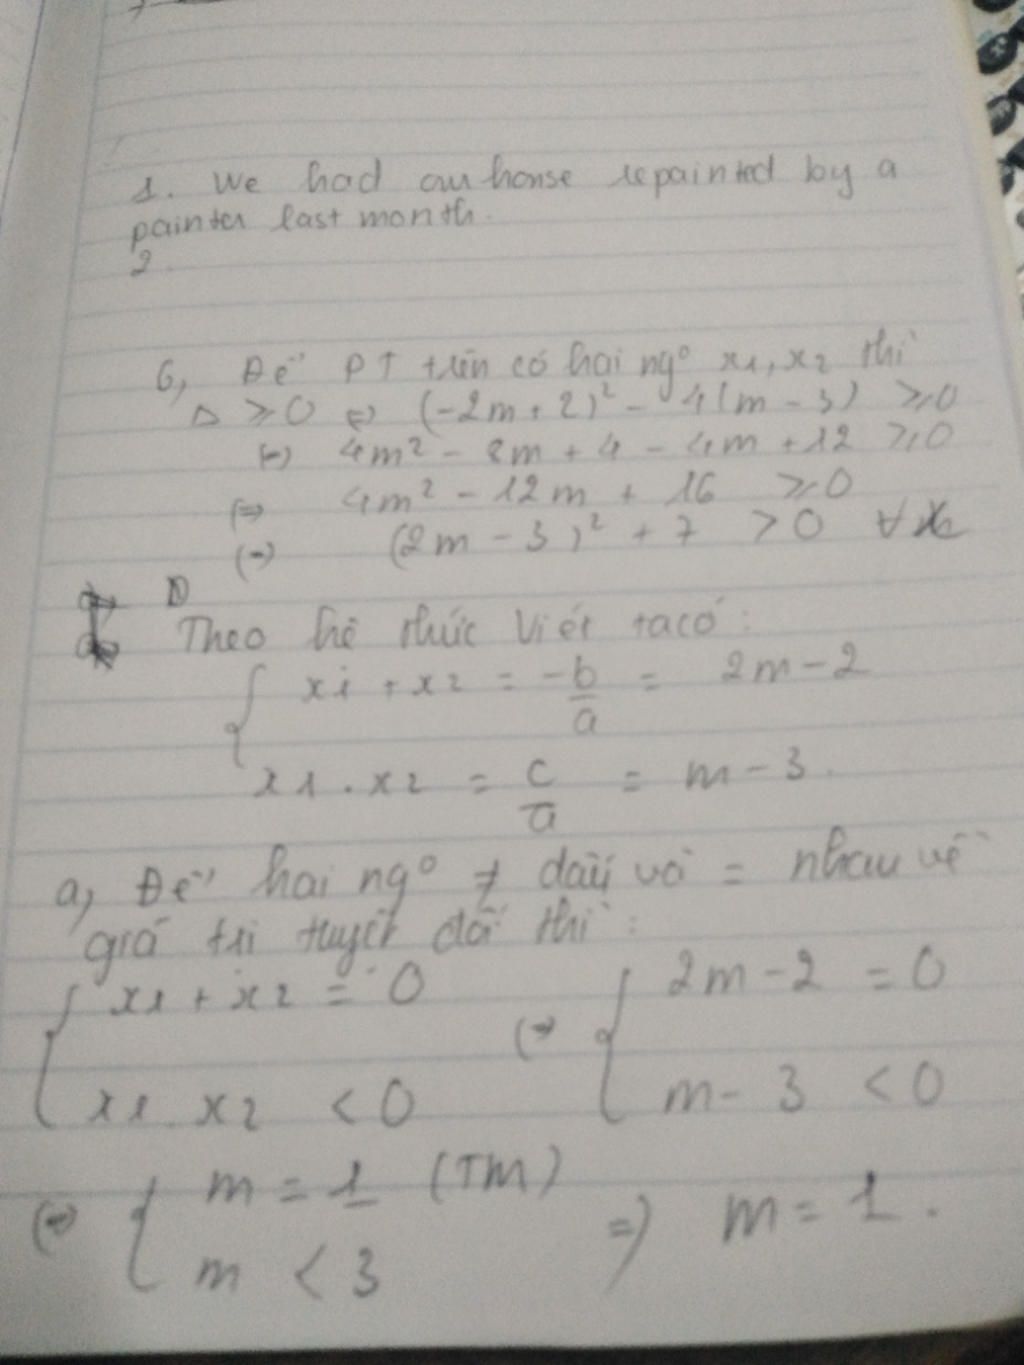 1. We had our house repainted by a
painter last month.
2.
6, Để PT trên có hai ng⁰ x1, x2 thì
Δ ≥ 0 ⇔ (-2m + 2)² - 4(m - 3) ≥ 0
⇔ 4m² - 8m + 4 - 4m + 12 ≥ 0
⇔ 4m² - 12m + 16 ≥ 0
⇔ (2m - 3)² + 7 > 0 ∀
Theo hệ thức Viét ta có :
x1 + x2 = -b/a = 2m - 2
x1 . x2 = c/a = m - 3.
a, Để hai ng⁰ ≠ dấu và = nhau về
giá trị tuyệt đối thì :
{ x1 + x2 = 0 ⇔ { 2m - 2 = 0
x1. x2 < 0 m - 3 < 0
⇔ { m = 1 (TM) ⇒ m = 1.
m < 3